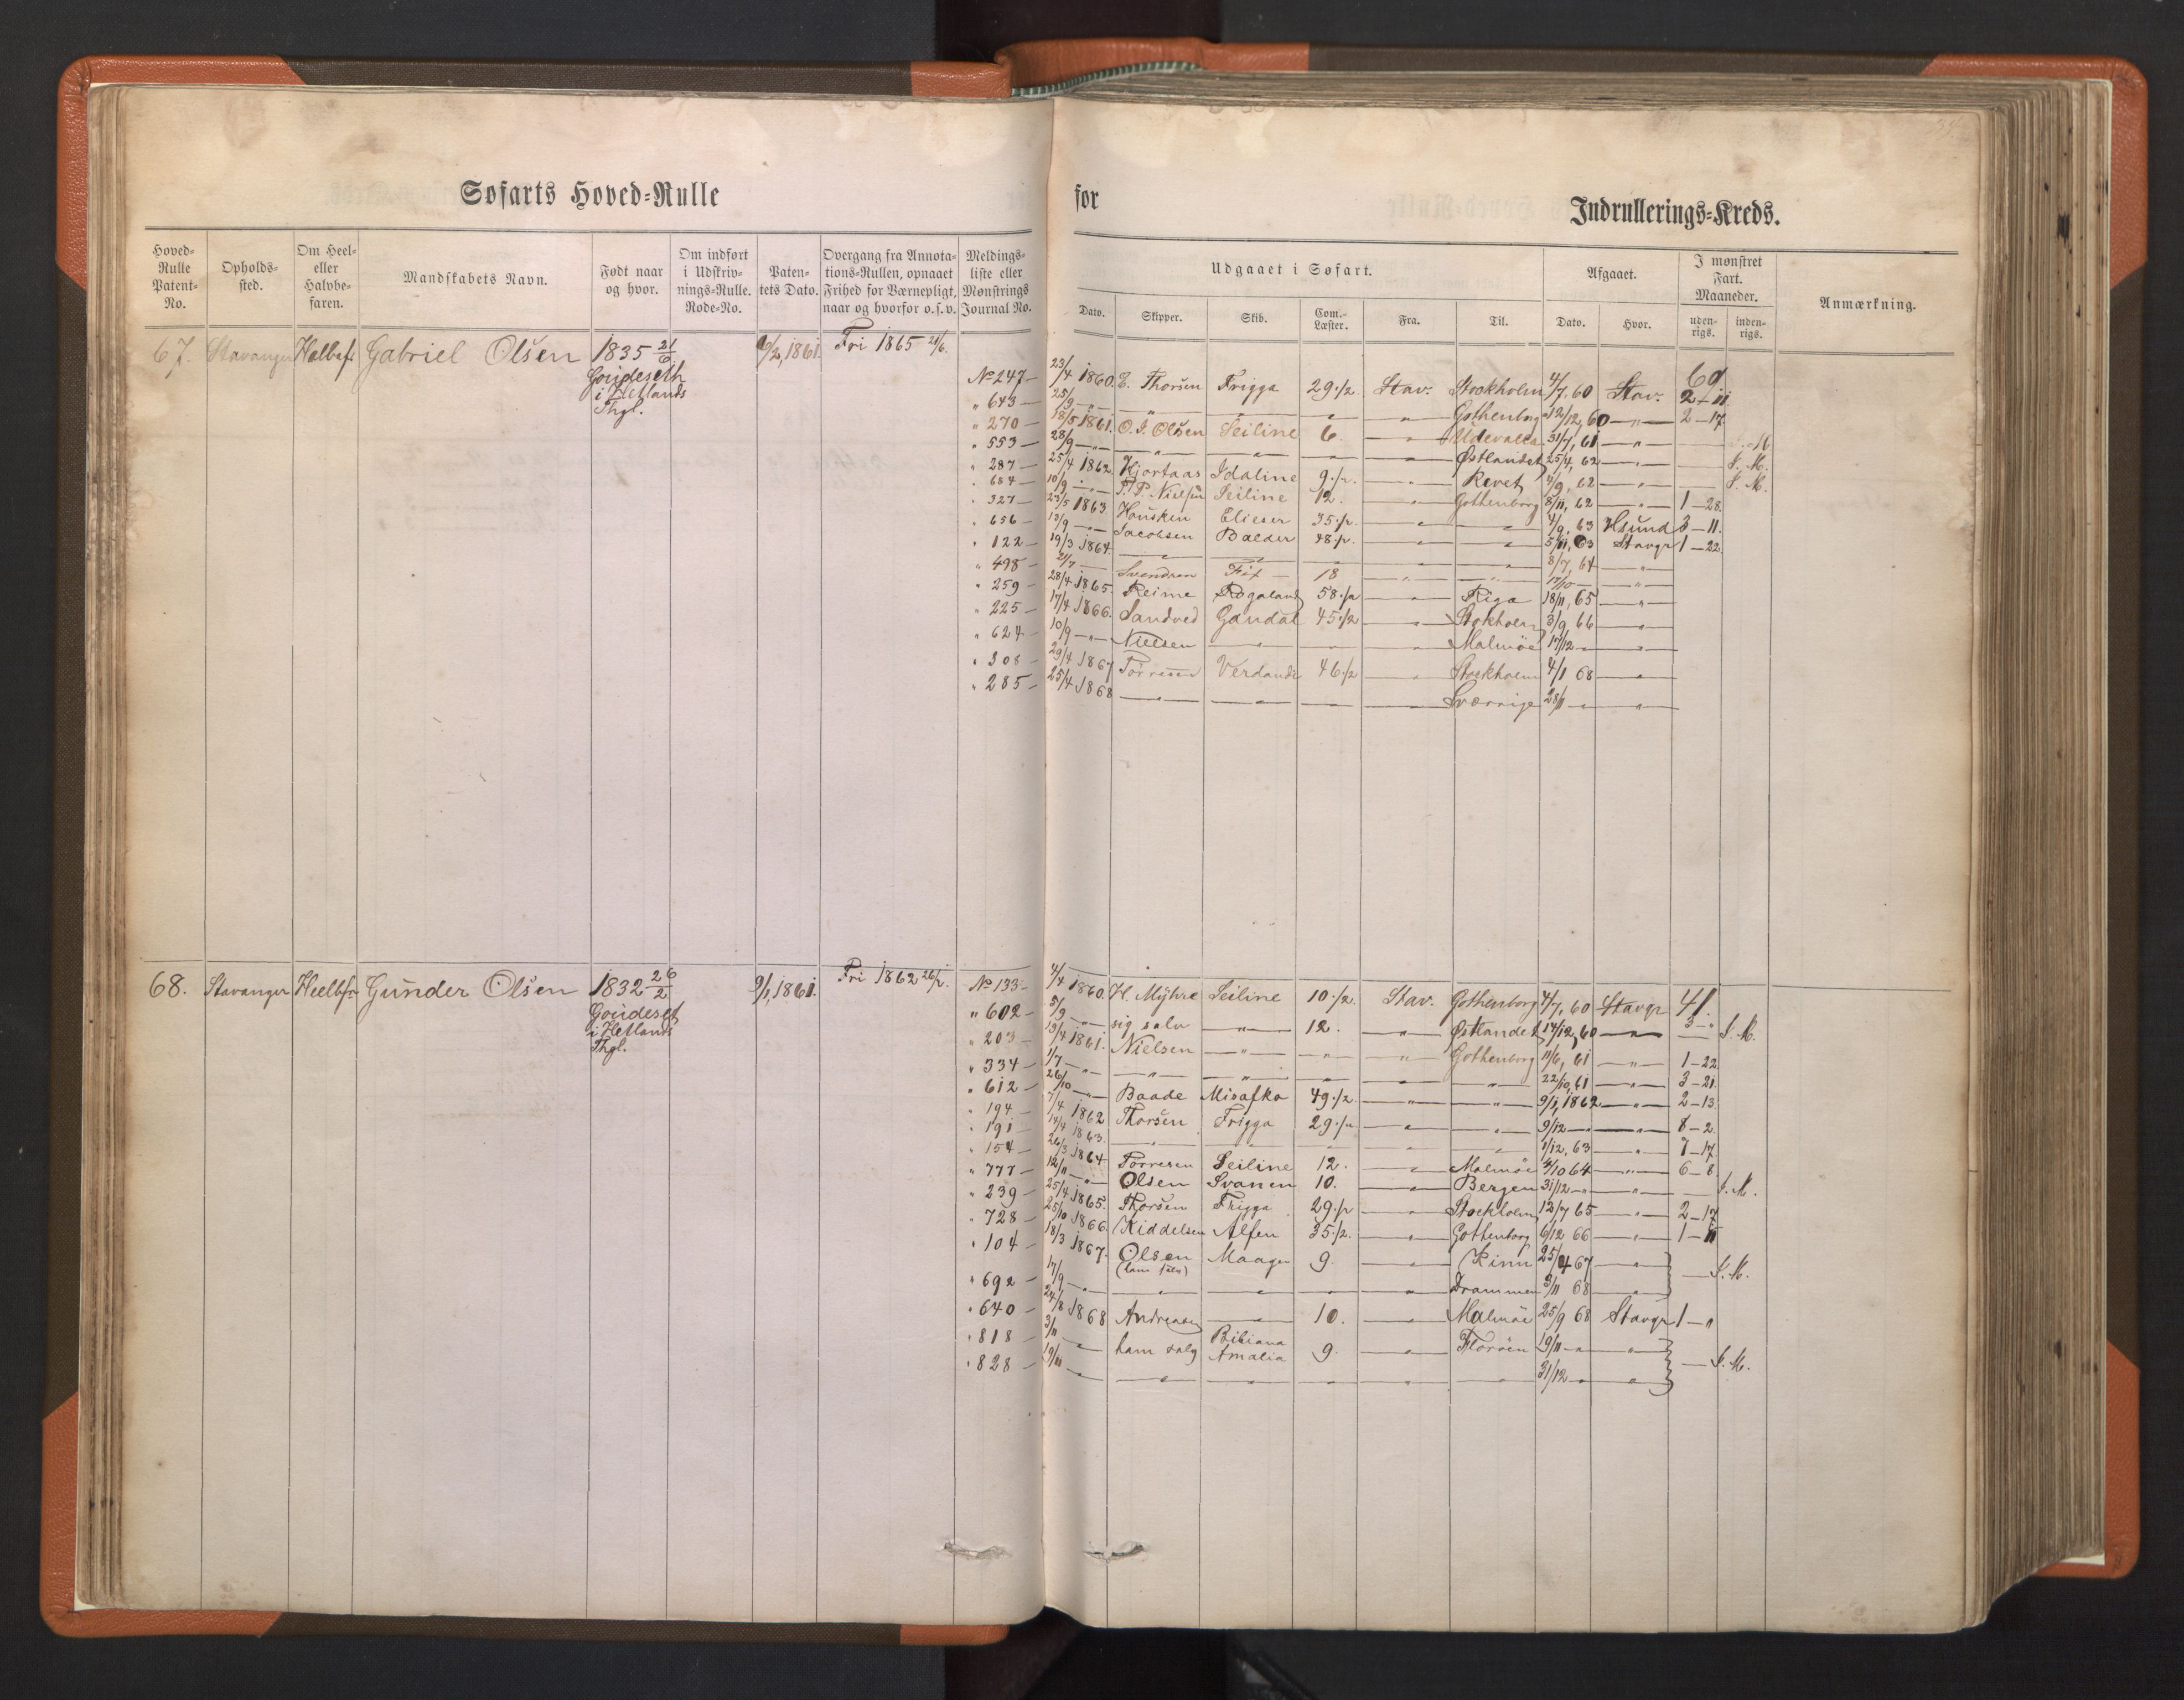 Søfarts Hoved-Rulle for Indrullerings-Kreds.
Hoved-Rulle Patent-No. | Opholds-sted. | Om Heel- eller Halvbe-faren. | Mandskabets Navn. | Født naar og hvor. | Om indført i Udskriv-nings-Rulle. Rode-No. | Paten-tets Dato. | Overgang fra Annota-tions-Rullen, opnaaet Frihed for Værnepligt, naar og hvorfor o.s.v. | Meldings-liste eller Mønstrings Journal No. | Udgaaet i Søfart. | Afgaaet. | I mønstret Fart. Maaneder. | Anmærkning.
Dato. | Skipper. | Skib. | Com.-Læster. | Fra. | Til. | Dato. | Hvor. | uden-rigs. | inden-rigs.
67. Stavanger Gabriel Olsen 1835 21/6 Fri 1865 21/6.
i Hetlands
Thgl.
60
No 247 — 23/4 1860. E. Thorsen Frigga 29 1/2. Stav. Stockholm 4/7, 60 Stav. 2 — 11
" 643 — 25/9 — " — — " — — " — " — " — Gothenborg 12/12, 60 — " — 2 — 17
" 270 — 18/5 1861. O. J. Olsen Seiline 6. — " — Udevalla 31/7, 61 — " —
" 553 — 28/9 — " — — " — — " — " — " — Østlandet 25/4, 62 — " — S. M.
" 287 — 25/4 1862 Hjortaas Idaline 9 1/2. — " — — " — S. M.
" 684 — 10/9 — " — P. Nielsen Seiline 12. — " — Gothenborg 8/11, 62 — " — 1 — 28.
" 327 — 23/5 1863 Housken Elieser 35 1/2. — " — — " — 4/9, 63 3 — 11.
" 656 — 13/9 — " — Jacobsen Balder 48 1/2. — " — — " — 5/11, 63 Stavgr 1 — 22.
" 122 — 19/3 1864. — " — — " — — " — — " — — " — 8/7, 64 — " —
" 498 — 21/7 — Svendsen 18 — " — — " — 17/10 — — " —
" 259 — 28/4 1865. Reime Rogaland 58 1/2 — " — Riga 18/11, 65 — " —
" 225 — 17/4 1866. Sandved Gandal 45 1/2 — " — Stokholm 3/9 66 — " —
" 624 — 10/9 — " — Nielsen — " — — " — — " — Malmöe 17/12 — " — — " —
" 308 — 29/4 1867 Torresen Verdande 46 1/2 — " — Stockholm 4/1 68 — " —
" 285 — 25/4 1868 — " — — " — — " — — " — Sverrige 28/11 — " — — " —
68. Stavanger Heelbf. Gunder Olsen 1832 26/2 9/1, 1861. Fri 1862 26/2.
i Hetlands
Thgl.
41.
No 133 — 4/4 1860. H. Myhre Seiline 10 1/2. Stav. Gothenborg 4/7, 60 Stavgr 3 — "
" 602 — 5/9 — " — sig selv — " — 12. — " — Østlandet 14/12, 60 — " — — S. M.
" 203 — 13/4 1861. Nielsen — " — — " — — " — Gothenborg 11/6, 61 — " — 1 — 22
" 334 — 1/7 — " — — " — — " — — " — — " — — " — 22/10, 61 — " — 3 — 21
" 612 — 26/10 — " — Baade 49 1/2. — " — — " — 9/1, 1862 — " — 2 — 13
" 194 — 7/4 1862 Thorsen Frigga 29 1/2 — " — — " — 9/12 — " — — " — 8 — 2
" 191 — 14/4 1863. — " — — " — — " — — " — — " — 1/12, 63 — " — 7 — 17
" 154 — 26/3 1864 Torresen Seiline 12. — " — Malmöe 4/10 64 — " — 6 — 8.
" 777 — 12/11 — " — Olsen Svanen 10. — " — Bergen 31/12 — " — — " — — S. M.
" 239 — 25/4 1865. Thorsen Frigga 29 1/2 — " — Stockholm 12/7 65 — " — 2 — 17
" 728 — 25/10 1866. Kiddelsen Alfen 35 1/2. — " — Gothenborg 6/12 66 — " —
" 104 — 18/3 1867. Olsen Maagen 9. — " — Kinn 25/4 67 — " — — S. M.
(ham selv)
" 692 — 17/9 — " — — " — — " — — " — — " — Drammen 3/11 68 — " —
" 640 — 24/8 1868 Andreasen — " — 10. — " — Malmöe 25/9 68 Stavgr 1 — "
" 818 — 3/11 — " — ham selv Bibiana Amalia 9. — " — Floröen 19/11 — " — — " — — S. M.
" 828 — 19/11 — — " — — " — — " — — " — — " — 31/12 — " — — " —